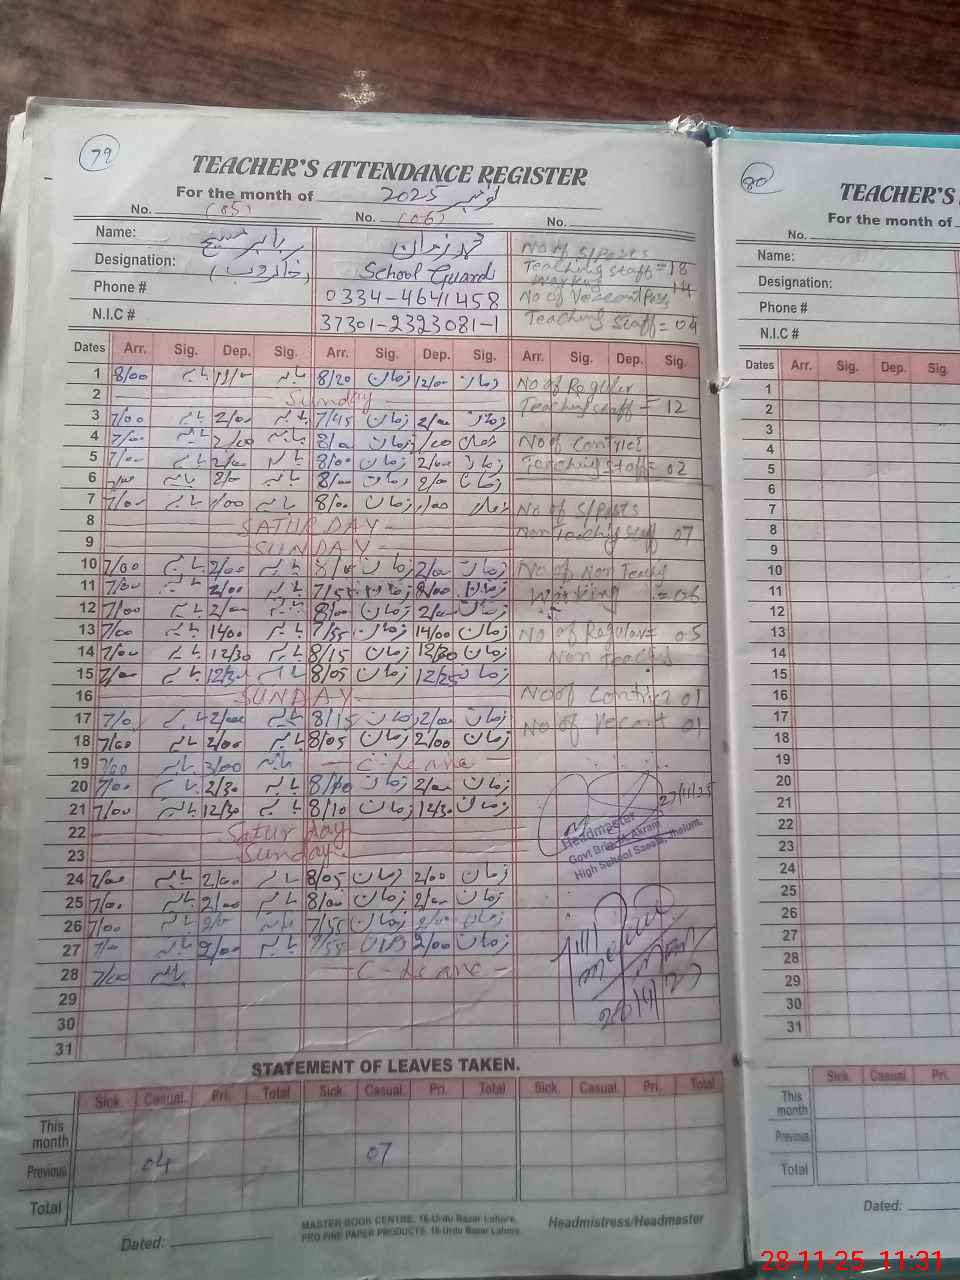 79
TEACHER'S ATTENDANCE REGISTER
For the month of نومبر 2025
No. (05) No. (06) No.
Name: بابر مسیح محمد زمان
Designation: (خاکروب) School Guard
Phone # 0334-4641458
N.I.C # 37301-2323081-1
No of S/Posts
Teaching staff = 18
Working 14
No of Veccent Posts
Teaching staff = 04
Dates Arr. Sig. Dep. Sig. Arr. Sig. Dep. Sig. Arr. Sig. Dep. Sig.
1 8/00 بابر بابر 8/20 زمان 12/00 زمان No of Reguler
2 Sunday Teaching staff = 12
3 7/00 بابر 2/00 بابر 7/45 زمان 2/00 زمان
4 7/00 بابر 2/00 بابر 8/00 زمان زمان No of Contract
5 7/00 بابر 2/00 بابر 8/00 زمان 2/00 زمان Teaching staff = 02
6 7/00 بابر بابر 8/00 زمان 2/00 زمان
7 7/00 بابر بابر 8/00 زمان زمان No of S/Posts
8 SATURDAY Non Teaching staff 07
9 SUNDAY
10 7/00 بابر 2/00 بابر زمان 2/00 زمان No of Non Teachg
11 7/00 بابر 2/00 بابر 7/55 زمان زمان Working = 06
12 7/00 بابر 2/00 بابر 8/00 زمان 2/00 زمان
13 7/00 بابر 1400 بابر 7/55 زمان 14/00 زمان No of Regular = 05
14 7/00 بابر 12/30 بابر 8/15 زمان 12/30 زمان Non Teaching
15 7/00 بابر 12/30 بابر 8/05 زمان 12/25 زمان
16 SUNDAY No of Contract 01
17 7/0 بابر 2/00 بابر 8/15 زمان 2/00 زمان No of Vecant 01
18 7/00 بابر 2/00 بابر 8/05 زمان 2/00 زمان
19 7/00 بابر 3/00 بابر C-Leave
20 7/00 بابر 2/30 بابر زمان 2/00 زمان
21 7/00 بابر 12/30 بابر 8/10 زمان 12/30 زمان
22 Saturday
23 Sunday
24 7/00 بابر 2/00 بابر 8/05 زمان 2/00 زمان
25 7/00 بابر 2/00 بابر 8/00 زمان 2/00 زمان
26 7/00 بابر بابر 7/55 زمان 2/00 زمان
27 7/00 بابر 2/00 بابر 7/55 زمان 2/00 زمان
28 7/00 بابر C-Leave
29
30
31
27/11/25
Headmaster
Govt Brig M. Akram
High School Jhelum.
STATEMENT OF LEAVES TAKEN.
Sick. Casual. Pri. Total Sick. Casual. Pri. Total Sick. Casual. Pri. Total
This month
Previous 04 07
Total
Dated:
MASTER BOOK CENTRE, 16-Urdu Bazar Lahore.
PRO FINE PAPER PRODUCTS, 16-Urdu Bazar Lahore.
Headmistress/Headmaster
80
TEACHER'S
For the month of
No.
Name:
Designation:
Phone #
N.I.C #
Dates Arr. Sig. Dep. Sig.
1
2
3
4
5
6
7
8
9
10
11
12
13
14
15
16
17
18
19
20
21
22
23
24
25
26
27
28
29
30
31
Sick. Casual Pri.
This month
Previous
Total
Dated:
28-11-25 11:31